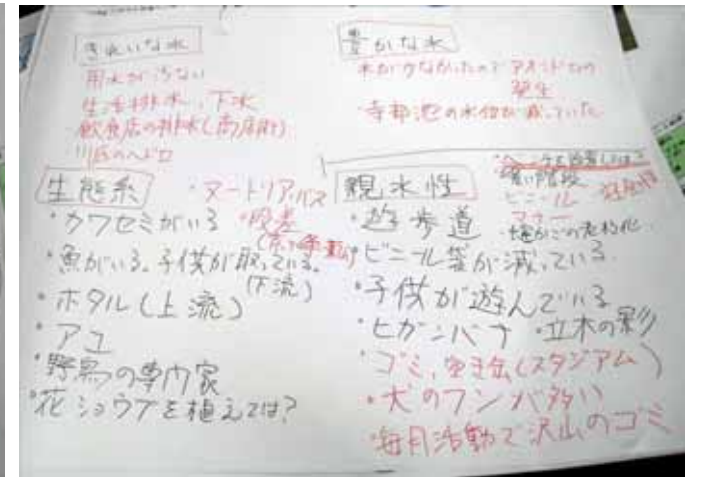 きれいな水
用水が汚ない
生活排水、下水
飲食店の排水(商店街)
川底のヘドロ
豊かな水
水が少なかったので アオコなどの
発生
寺部池の水位が減っていた
生態系
・ヌートリア、バス
・カワセミがいる ・段差
・魚がいる。子供が取っている。
(下流)
・ホタル(上流)
・アユ
・野鳥の専門家
・花ショウブを植えては?
親水性
階段
ビニール
マナー
・遊歩道
・ビニール袋が減っている
・子供が遊んでいる
・ヒガンバナ ・立木の影
・ゴミ、空き缶(スタジアム)
・犬のフンが多い
・毎月活動で沢山のゴミ